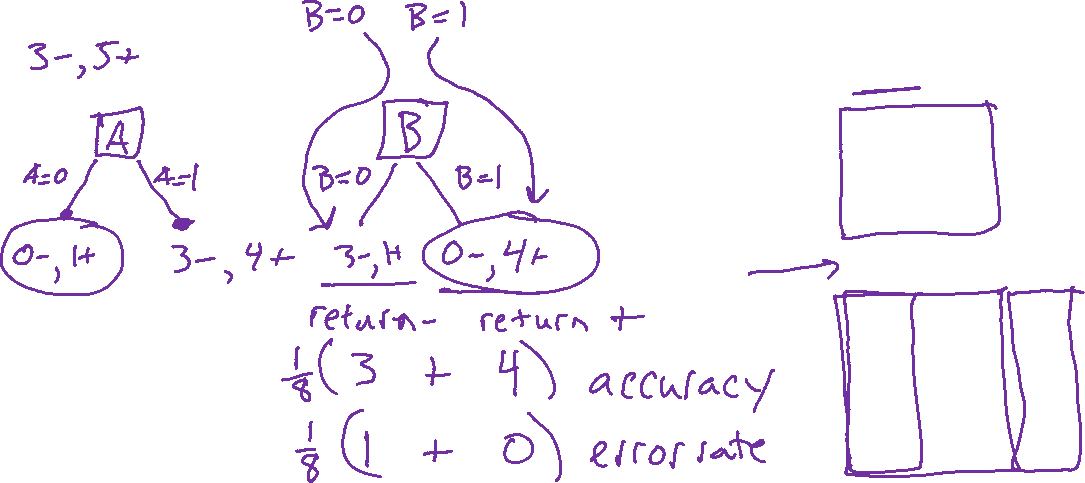 B=0 B=1
3-, 5+
A B
A=0 A=1 B=0 B=1
0-, 1+ 3-, 4+ 3-, 1+ 0-, 4+
return- return +
1/8 ( 3 + 4 ) accuracy
1/8 ( 1 + 0 ) error rate